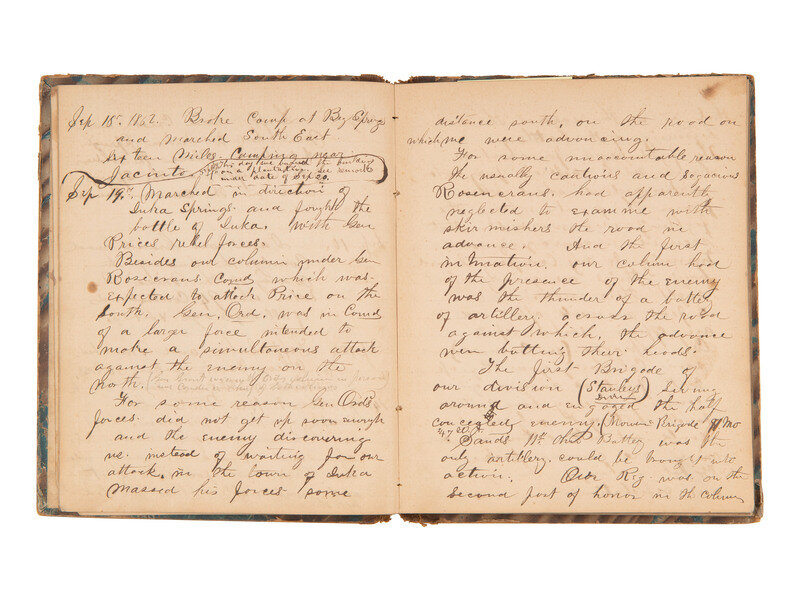 Sep 18th 1862. Broke Camp at Big Springs
and marched South East
Sixteen Miles. Camping near
Jacinto
on a plantation. See remark
under date of Sep 20.
Sep 19th Marched in direction of
Iuka Springs and fought the
battle of Iuka. With Gen
Prices rebel forces.
Besides our column under Gen
Rosecrans Comd which was
expected to attack Price on the
South. Gen. Ord. was in Comd
of a large force intended to
make a simultaneous attack
against the enemy on the
north.
For some reason Gen Ord's
forces did not get up soon enough
and the enemy discovering
us instead of waiting for our
attack, in the town of Iuka
massed his forces some
distance south, on the road on
which we were advancing.
For some unaccountable reason
the usually cautious and sagacious
Rosencrans. had apparently
neglected to examine with
skirmishers the road in
advance. And the first
intimation our column had
of the presence of the enemy
was the thunder of a battery
of artillery across the road
against which, the advance
were butting their heads.
The first Brigade of
our division (Stanleys
around and engaged the half
concealed enemy. Brigade
Sands 11th Ohio Battery was the
only artillery could be brought into
action. Our Reg. was on the
Second post of honor in the column